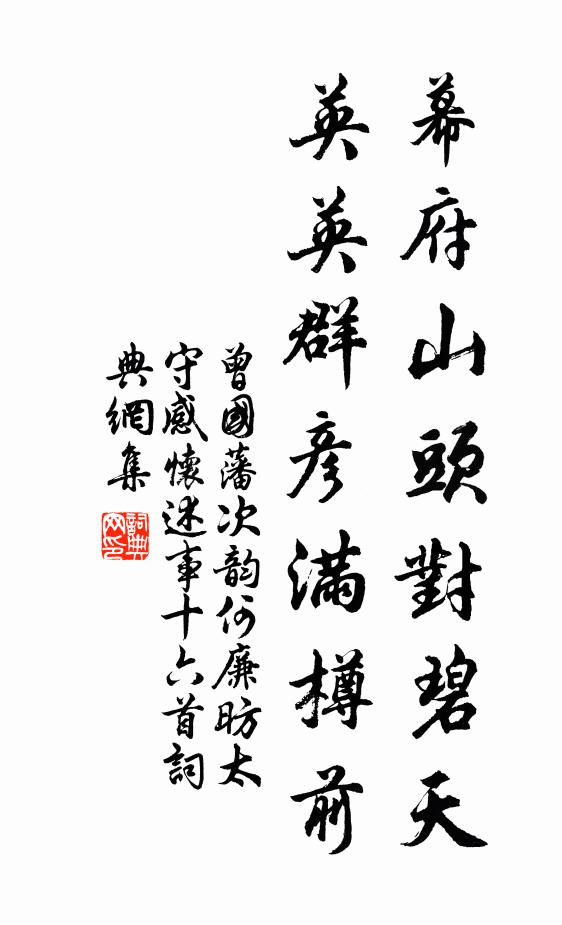 幕府山頭對碧天
英英群彥滿樽前
曾國藩次韵何廉昉太
守感懷述事十六首詞
典網集
詞典
网印